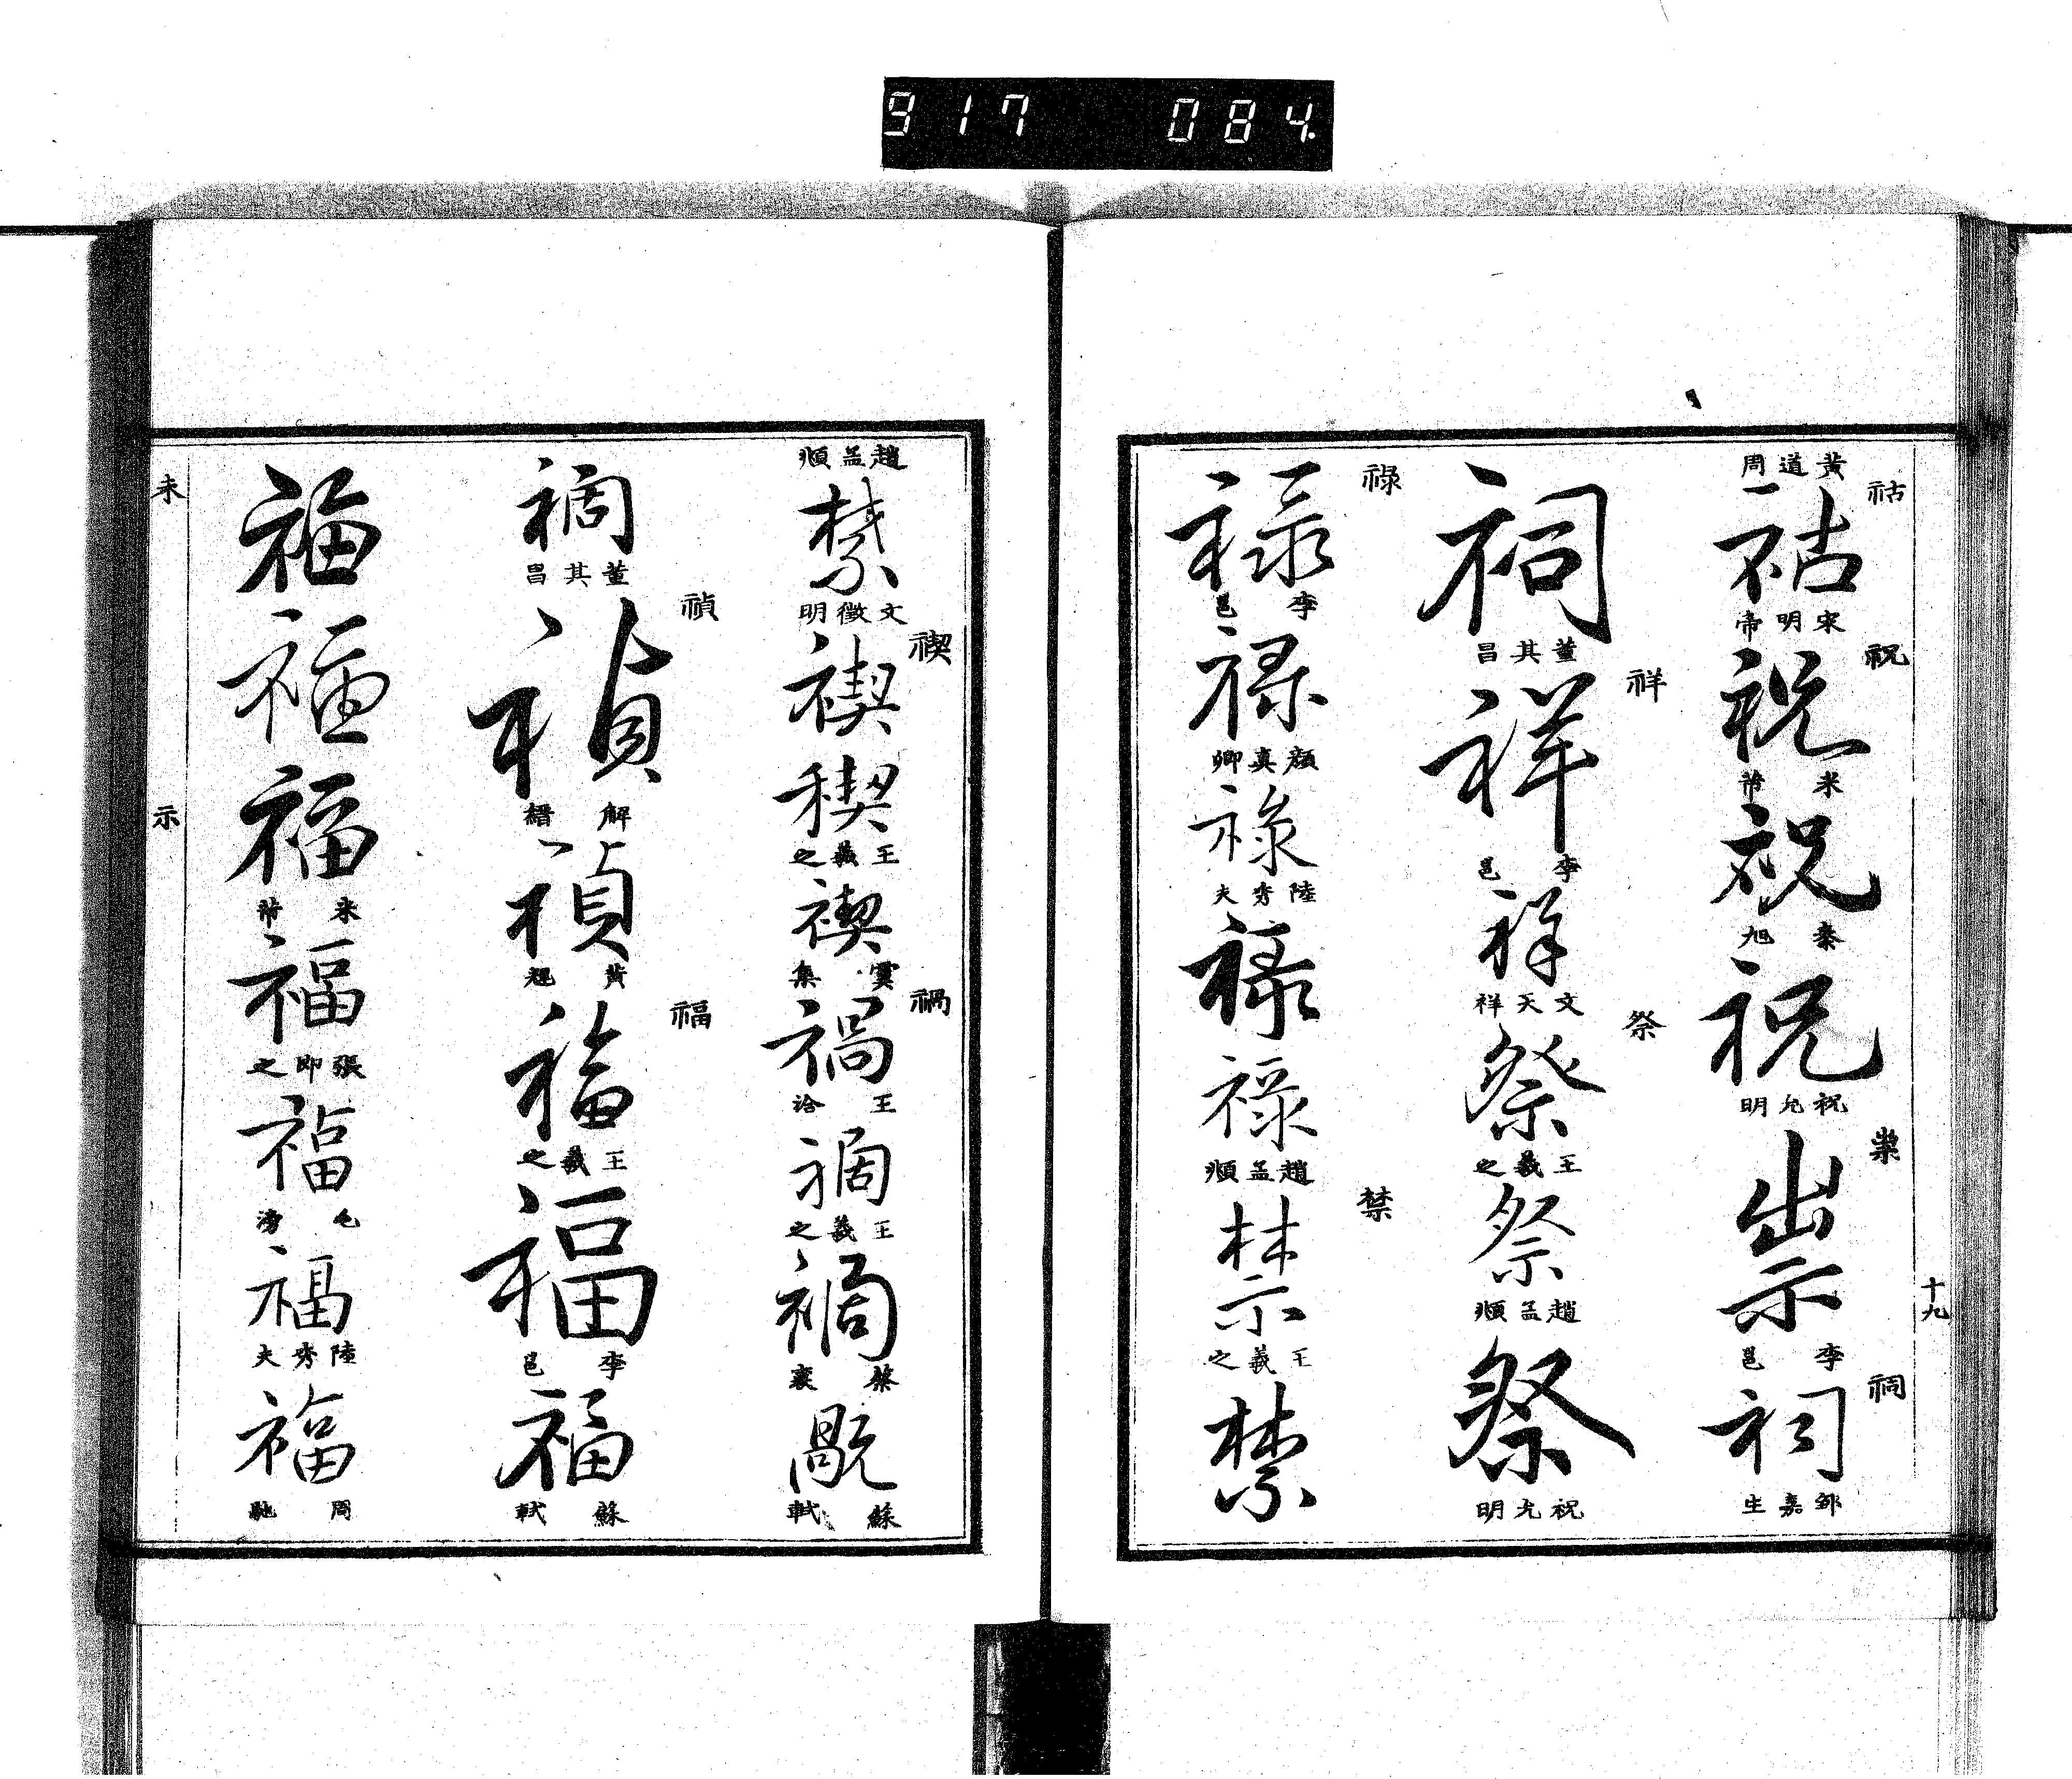 917 084
十九
祜
黃道周
祜
宋明帝
祝
祝
米芾
祝
秦旭
祝
祝允明
祟
祟
李邕
祠
祠
鄒嘉生
祠
董其昌
祥
祥
李邕
祥
文天祥
祭
祭
王羲之
祭
趙孟頫
祭
祝允明
祿
祿
李邕
祿
顏真卿
祿
陸秀夫
祿
祿
趙孟頫
禁
禁
王羲之
禁
趙孟頫
禁
文徵明
禊
禊
禊
王羲之
禊
虞集
禍
禍
王洽
禍
王羲之
禍
蔡襄
蘇軾
禍
董其昌
禎
禎
解縉
禎
黃
福
福
王羲之
福
李邕
福
蘇軾
福
福
福
米芾
福
張即之
福
毛滂
福
陸秀夫
福
周馳
未
示